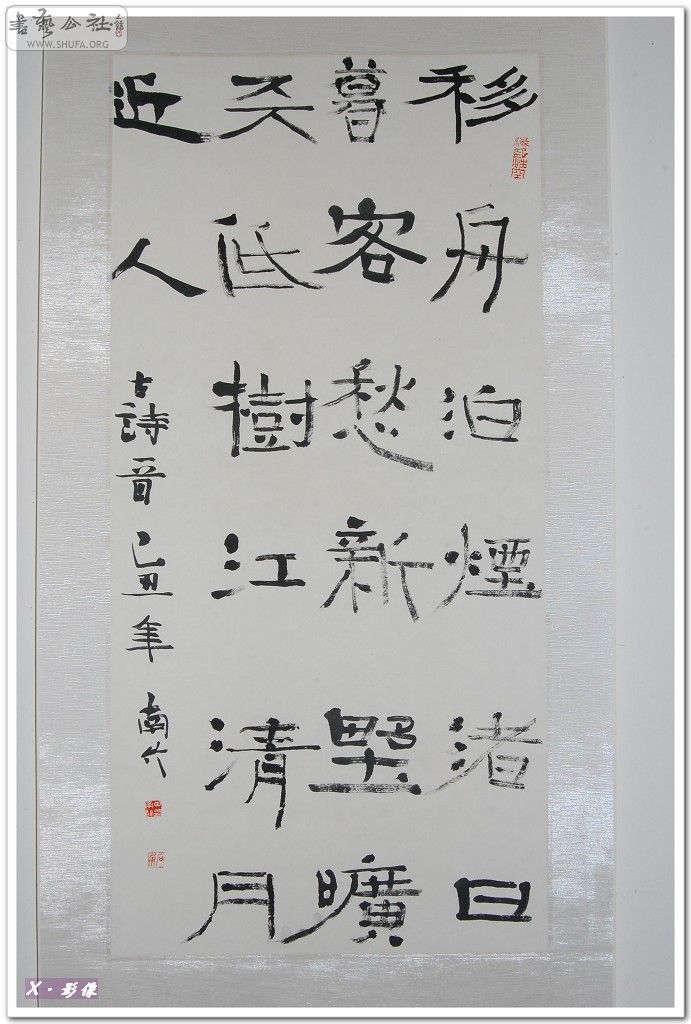 書藝公社
WWW.SHUFA.ORG
移舟泊煙渚日
暮客愁新野曠
天低樹江清月
近人
古詩一首 己丑年 南
X·影像